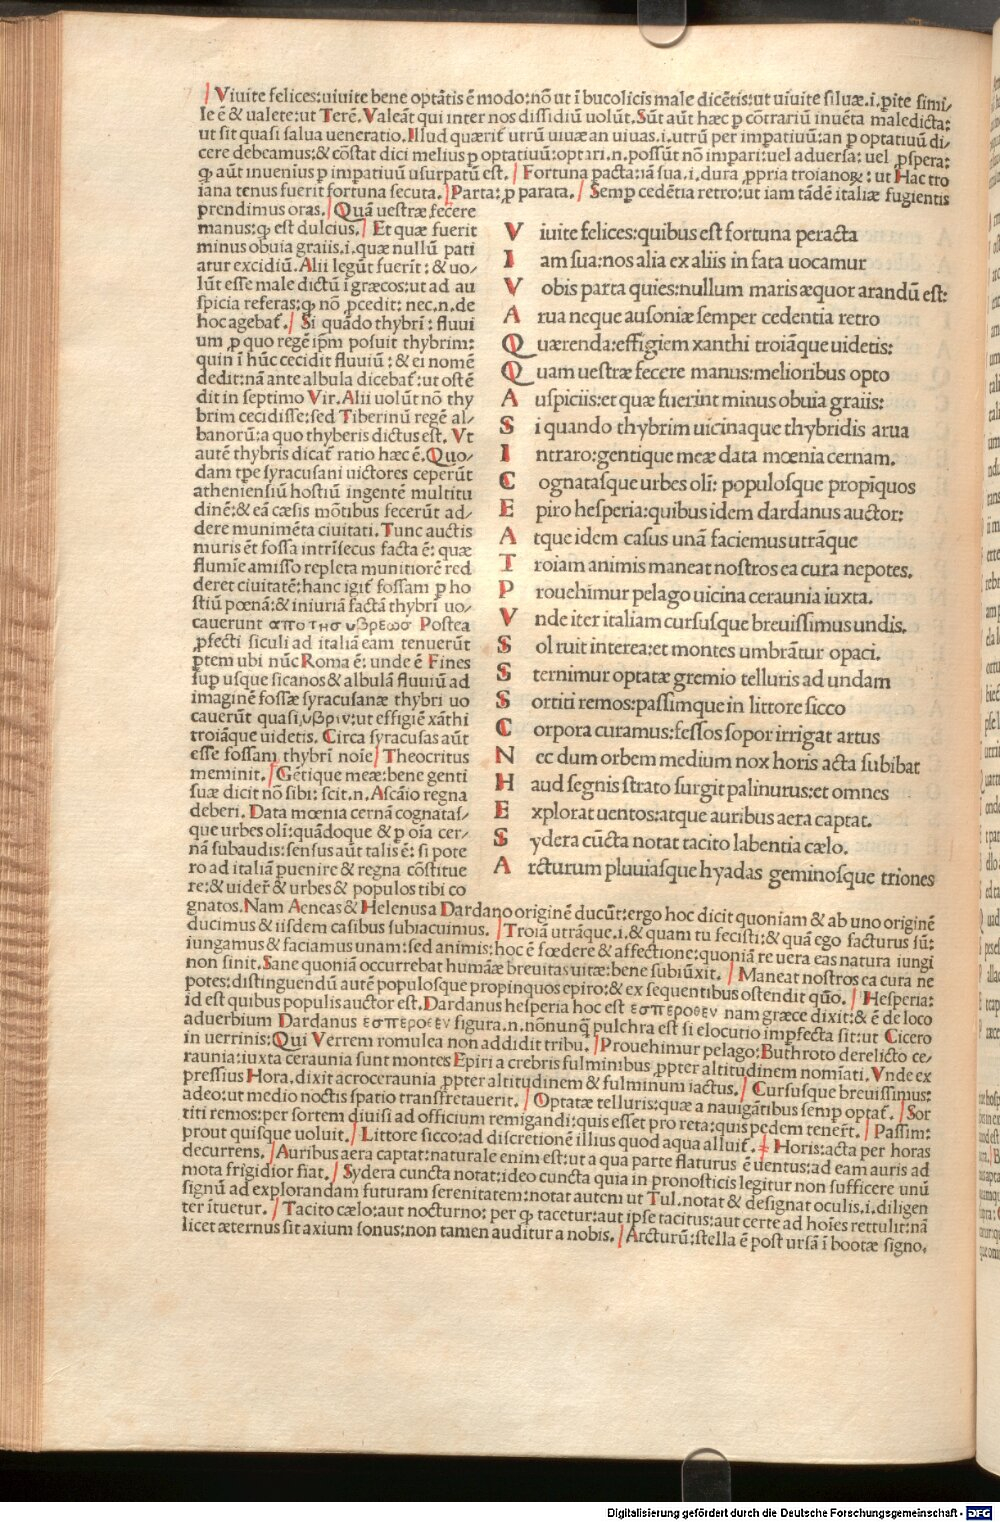 Viuite felices:uiuite bene optātis ē modo:nō ut ī bucolicis male dicētis:ut uiuite siluæ.i.pite simi/
le ē & ualete:ut Terē. Valeāt qui inter nos dissidiū uolūt. Sūt aūt hæc p cōtrariū inuēta maledicta:
ut sit quasi salua ueneratio. Illud quærit᷑ utrū uiuæ an uiuas.i.utrū per impatiuū:an p optatiuū di/
cere debeamus:& cōstat dici melius p optatiuū:optari.n.possūt nō impari:uel aduersa: uel ꝓspera:
ꝙ aūt inuenius p impatiuū usurpatū est. / Fortuna pacta:iā sua.i.dura ꝓpria troianoꝝ: ut Hac tro
iana tenus fuerit fortuna secuta. / Parta: ꝓ parata. / Semp cedētia retro:ut iam tādē italiæ fugientis
prendimus oras. / Quā uestræ fecere
manus:ꝙ est dulcius. / Et quæ fuerit
minus obuia graiis.i.quæ nullū pati
atur excidiū. Alii legūt fuerit: & uo/
lūt esse male dictū ī græcos:ut ad au
spicia referas:ꝙ nō ꝓcedit: nec.n.de
hoc agebat᷑. / Si quādo thybrī: fluui
um ꝓ quo regē ip̄m posuit thybrim:
quin ī hūc cecidit fluuiū: & ei nomē
dedit:nā ante albula dicebat᷑:ut ostē
dit in septimo Vir. Alii uolūt nō thy
brim cecidisse:sed Tiberinū regē al/
banorū:a quo thyberis dictus est. Vt
autē thybris dicat᷑ ratio hæc ē. Quo/
dam tp̄e syracusani uictores ceperūt
atheniensiū hostiū ingentē multitu
dinē:& eā cæsis mōtibus fecerūt ad/
dere munimēta ciuitati. Tunc auctis
muris ēt fossa intrīsecus facta ē: quæ
flumīe amisso repleta munitiorē red
deret ciuitatē:hanc igit᷑ fossam p ho
stiū pœnā:& iniuriā factā thybrī uo/
cauerunt απο τησ υβρεωσ Postea
ꝓfecti siculi ad italiā eam tenuerūt
ꝑtem ubi nūc Roma ē: unde ē Fines
sup usque sicanos & albulā fluuiū ad
imaginē fossæ syracusanæ thybrī uo
cauerūt quasi,υβριν:ut effigiē xāthi
troiāque uidetis. Circa syracusas aūt
esse fossam thybrī noīe / Theocritus
meminit. / Gētique meæ:bene genti
suæ dicit nō sibi: scit.n.Ascāio regna
deberi. Data mœnia cernā cognatas/
que urbes olī:quādoque & p oīa cer/
nā subaudis:sensus aūt talis ē: si pote
ro ad italiā puenire & regna cōstitue
re:& uider̄ & urbes & populos tibi co
V iuite felices:quibus est fortuna peracta
I am sua:nos alia ex aliis in fata uocamur
V obis parta quies:nullum maris æquor arandū est:
A rua neque ausoniæ semper cedentia retro
Q uærenda:effigiem xanthi troiāque uidetis:
Q uam uestræ fecere manus:melioribus opto
A uspiciis:et quæ fuerint minus obuia graiis:
S i quando thybrim uicinaque thybridis arua
I ntraro:gentique meæ data mœnia cernam.
C ognatasque urbes olī: populosque propīquos
E piro hesperia:quibus idem dardanus auctor:
A tque idem casus unā faciemus utrāque
T roiam animis maneat nostros ea cura nepotes.
P rouehimur pelago uicina ceraunia iuxta.
V nde iter italiam cursusque breuissimus undis.
S ol ruit interea:et montes umbrātur opaci.
S ternimur optatæ gremio telluris ad undam
S ortiti remos:passimque in littore sicco
C orpora curamus:fessos sopor irrigat artus
N ec dum orbem medium nox horis acta subibat
H aud segnis strato surgit palinurus:et omnes
E xplorat uentos:atque auribus aera captat.
S ydera cūcta notat tacito labentia cælo.
A rcturum pluuiasque hyadas geminosque triones
gnatos. Nam Aeneas & Helenus a Dardano originē ducūt:ergo hoc dicit quoniam & ab uno originē
ducimus & iisdem casibus subiacuimus. / Troiā utrāque.i.& quam tu fecisti:& quā ego facturus sū:
iungamus & faciamus unam:sed animis:hoc ē fœdere & affectione:quoniā re uera eas natura iungi
non sinit. Sane quoniā occurrebat humāæ breuitas uitæ:bene subiūxit. / Maneat nostros ea cura ne
potes:distinguendū autē populosque propinquos epiro:& ex sequentibus ostendit quō. / Hesperia:
id est quibus populis auctor est. Dardanus hesperia hoc est εσπεροθεν nam græce dixit:& ē de loco
aduerbium Dardanus εσπεροθεν figura.n.nōnunꝗ pulchra est si elocutio impfecta sit:ut Cicero
in uerrinis:Qui Verrem romulea non addidit tribu. / Prouehimur pelago:Buthroto derelicto ce/
raunia:iuxta ceraunia sunt montes Epiri a crebris fulminibus ꝓpter altitudinem nomīati. Vnde ex
pressius Hora.dixit acroceraunia ꝓpter altitudinem & fulminum iactus. / Cursusque breuissimus:
adeo:ut medio noctis spatio transfretauerit. / Optatæ telluris:quæ a nauigātibus semp optat᷑. / Sor
titi remos:per sortem diuisi ad officium remigandi:quis esset pro reta:quis pedem tener̄t. / Passim:
prout quisque uoluit. / Littore sicco:ad discretionē illius quod aqua alluit᷑. / Horis:acta per horas
decurrens. / Auribus aera captat:naturale enim est:ut a qua parte flaturus ē uentus:ad eam auris ad
mota frigidior fiat. / Sydera cuncta notat:ideo cuncta quia in pronosticis legitur non sufficere unū
signū ad explorandam futuram serenitatem:notat autem ut Tul.notat & designat oculis.i.diligen
ter ītuetur. / Tacito cælo:aut nocturno: per ꝙ tacetur:aut ipse tacitus:aut certe ad hoīes rettulit:nā
licet æternus sit axium sonus:non tamen auditur a nobis. / Arcturū:stella ē post ursā ī bootæ signo.
Digitalisierung gefördert durch die Deutsche Forschungsgemeinschaft - DFG